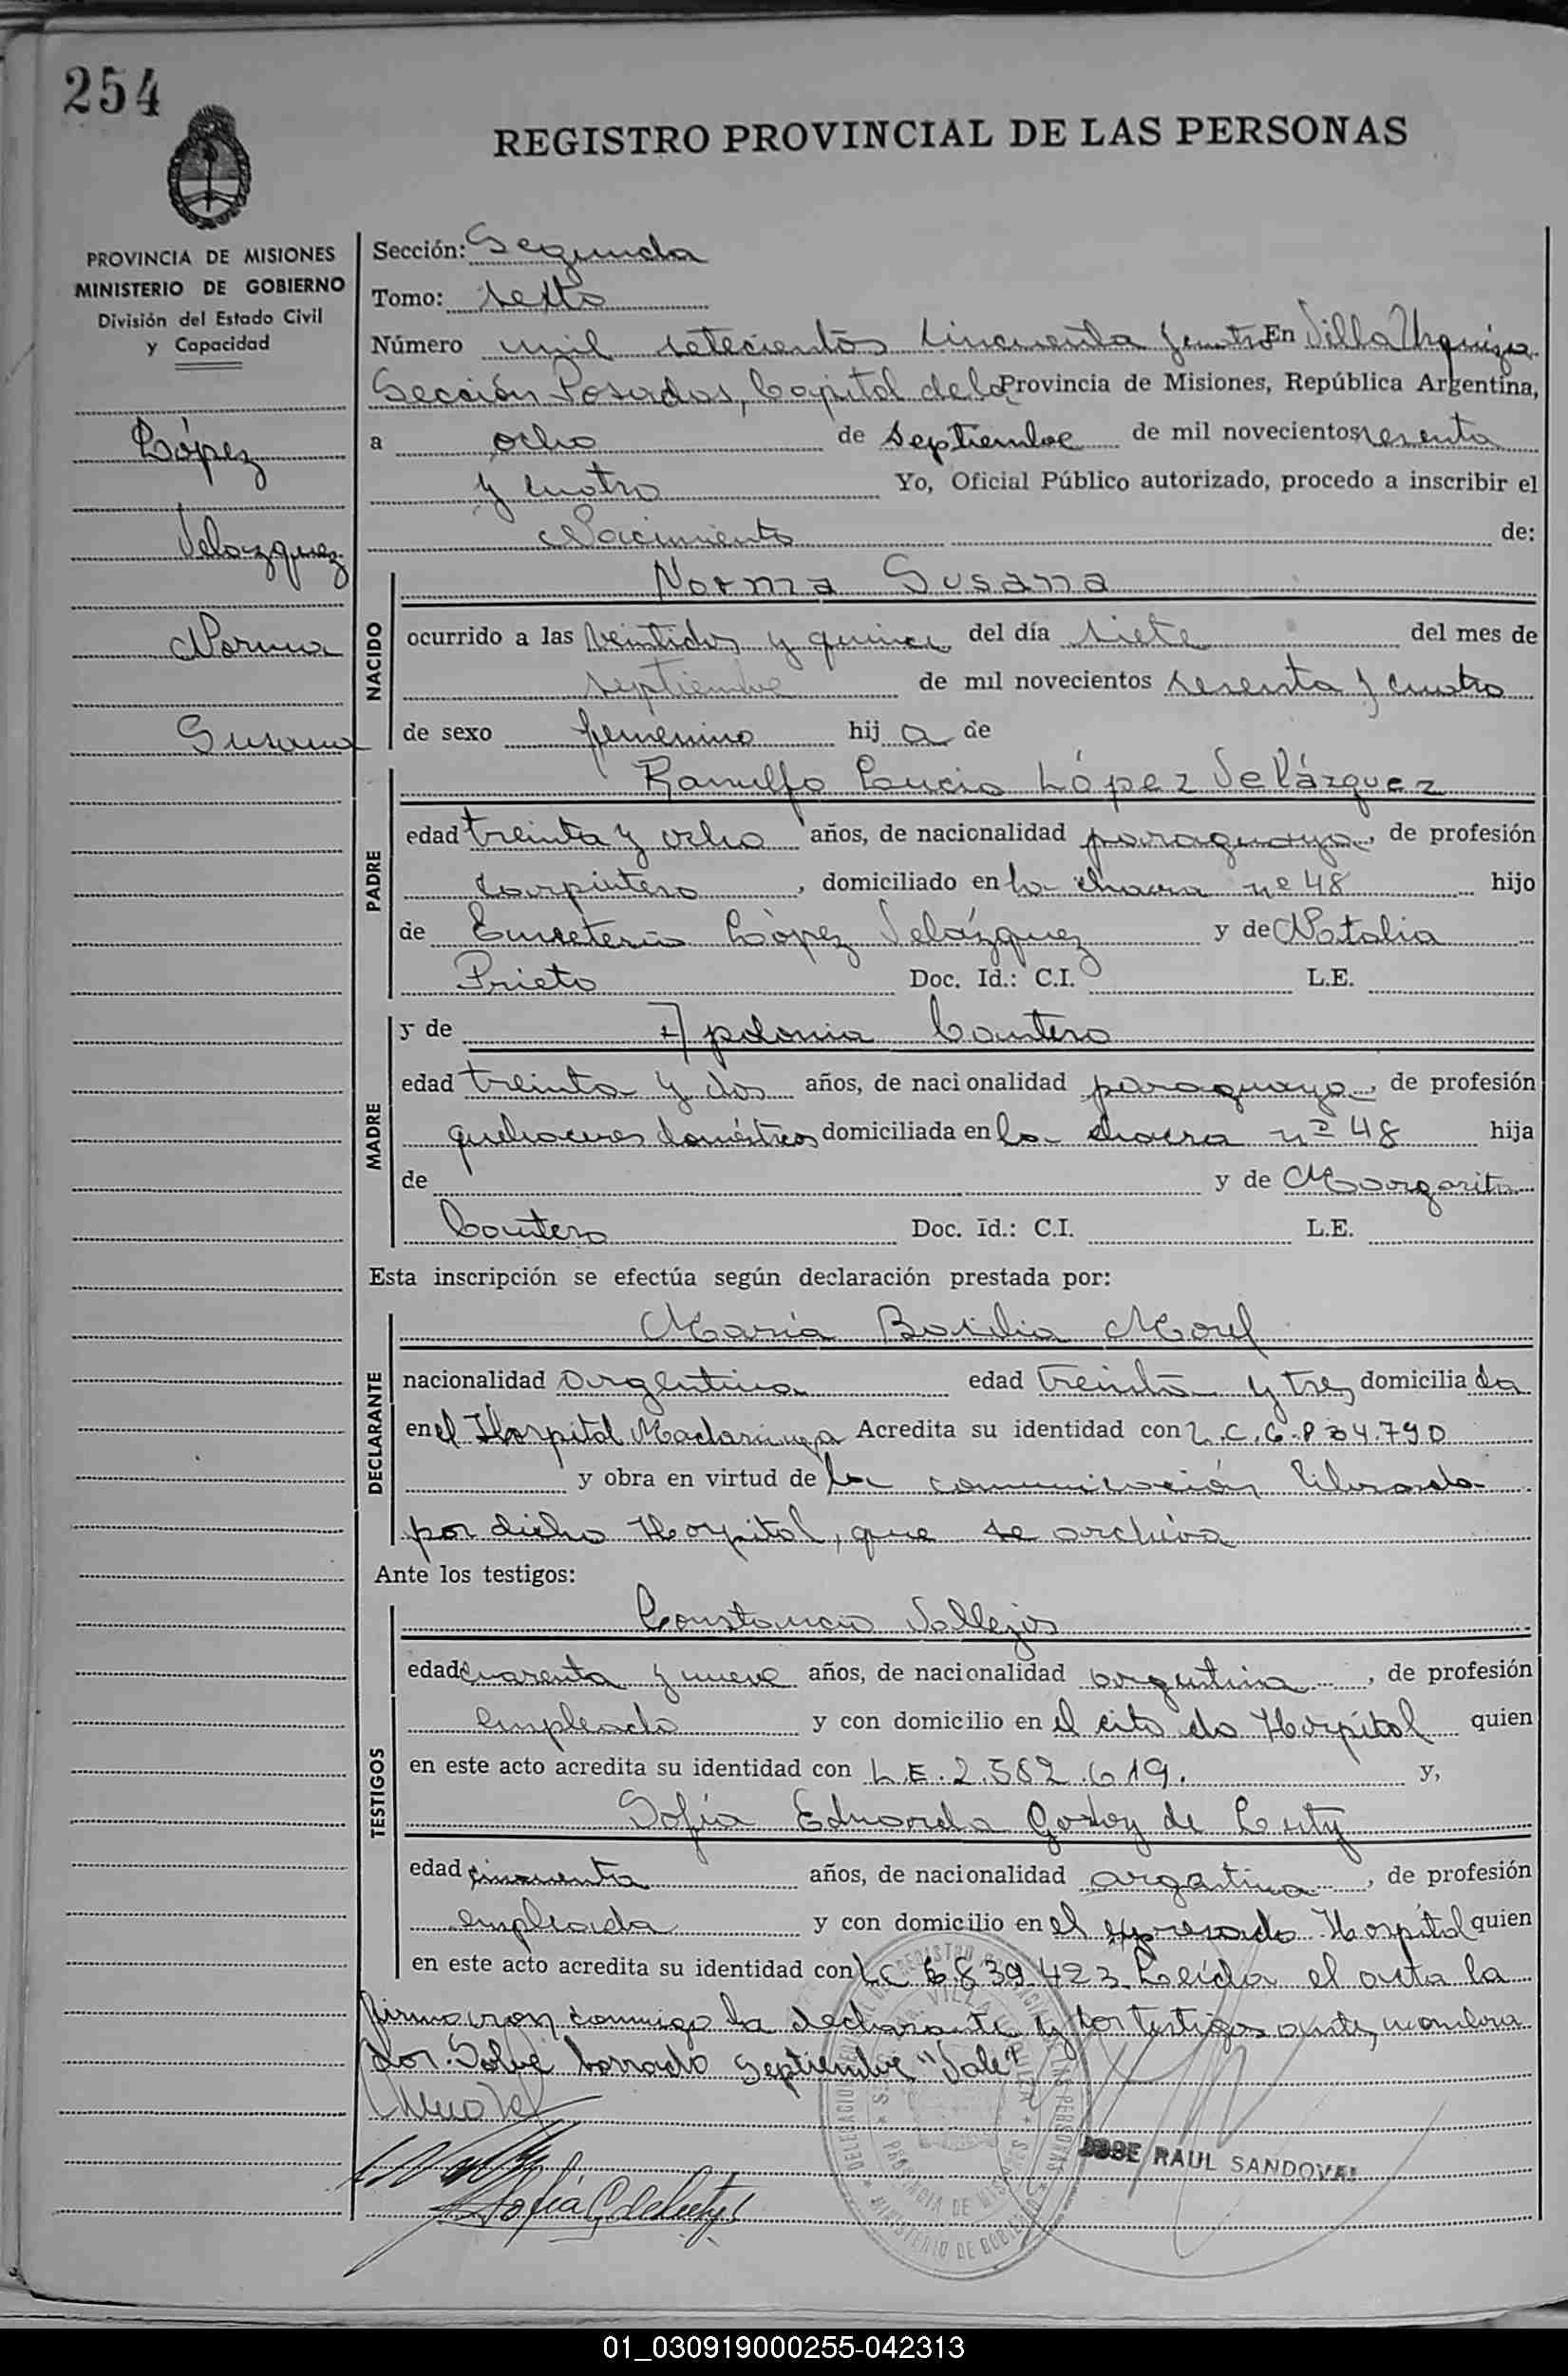 254
REGISTRO PROVINCIAL DE LAS PERSONAS
PROVINCIA DE MISIONES
MINISTERIO DE GOBIERNO
División del Estado Civil
y Capacidad
López
Velazquez
Norma
Susana
Sección: Segunda
Tomo: sexto
Número mil setecientos cincuenta y cuatro En Villa Urquiza
Sección Posadas, Capital de la Provincia de Misiones, República Argentina,
a ocho de Septiembre de mil novecientos sesenta
y cuatro Yo, Oficial Público autorizado, procedo a inscribir el
Nacimiento de:
NACIDO
Norma Susana
ocurrido a las veintidos y quince del día siete del mes de
septiembre de mil novecientos sesenta y cuatro
de sexo femenino hij a de
PADRE
Ranulfo Lucio López Velázquez
edad treinta y ocho años, de nacionalidad paraguaya, de profesión
carpintero, domiciliado en la chacra nº 48 hijo
de López Velázquez y de Natalia
Prieto Doc. Id.: C.I. L.E.
MADRE
y de Apolonia Cantero
edad treinta y dos años, de nacionalidad paraguaya, de profesión
quehaceres domésticos domiciliada en la chacra nº 48 hija
de y de Margarita
Cantero Doc. Id.: C.I. L.E.
Esta inscripción se efectúa según declaración prestada por:
DECLARANTE
María Basilia Morel
nacionalidad argentina edad treinta y tres domicilia da
en el Hospital Madariaga Acredita su identidad con L.C. 6.834.790
y obra en virtud de la comunicación librada
por dicho Hospital, que se archiva
Ante los testigos:
TESTIGOS
Constancio Vallejos
edad cuarenta y nueve años, de nacionalidad argentina, de profesión
empleado y con domicilio en el citado Hospital quien
en este acto acredita su identidad con L.E. 2.562.619. y,
Sofía Eduarda Godoy de
edad cincuenta años, de nacionalidad argentina, de profesión
empleada y con domicilio en el expresado Hospital quien
en este acto acredita su identidad con LC 6.839.423. Leída el acta la
firmaron conmigo la declarante y los testigos antes nombra
dos. Sobre borrado Septiembre "Vale"
JOSE RAUL SANDOVAL
01_030919000255-042313